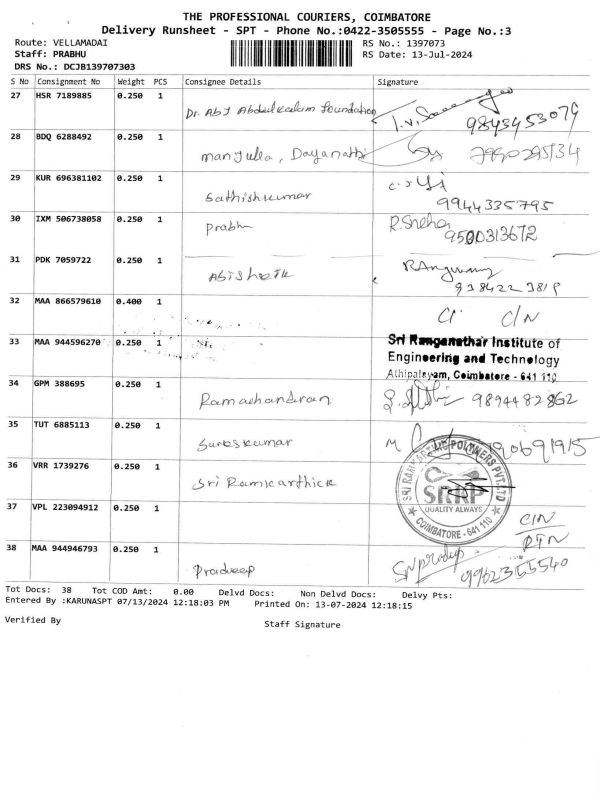 THE PROFESSIONAL COURIERS, COIMBATORE
Delivery Runsheet - SPT - Phone No.:0422-3505555 - Page No.:3
Route: VELLAMADAI RS No.: 1397073
Staff: PRABHU RS Date: 13-Jul-2024
DRS No.: DCJB139707303
S No Consignment No Weight PCS Consignee Details Signature
27 HSR 7189885 0.250 1
Dr. Abj Abdulkalam foundation 9843453079
28 BDQ 6288492 0.250 1
manjula, Dayanathi
29 KUR 696381102 0.250 1
Sathishkumar 9944335795
30 IXM 506738058 0.250 1
Prabhu R.Sneha
9500313672
31 PDK 7059722 0.250 1
Abisheik
32 MAA 866579610 0.400 1
C/N
33 MAA 944596270 0.250 1
Sri Ranganathar Institute of
Engineering and Technology
Athipalayam, Coimbatore - 641 110
34 GPM 388695 0.250 1
Ramachandran 9894482862
35 TUT 6885113 0.250 1
Sureskumar
36 VRR 1739276 0.250 1
Sri Ramkarthick
SRI RAMKARTHIC POLYMERS PVT. LTD
SRRP
QUALITY ALWAYS
COIMBATORE - 641 110
37 VPL 223094912 0.250 1
C/N
RTN
38 MAA 944946793 0.250 1
Pradeep 9962355540
Tot Docs: 38 Tot COD Amt: 0.00 Delvd Docs: Non Delvd Docs: Delvy Pts:
Entered By :KARUNASPT 07/13/2024 12:18:03 PM Printed On: 13-07-2024 12:18:15
Verified By Staff Signature